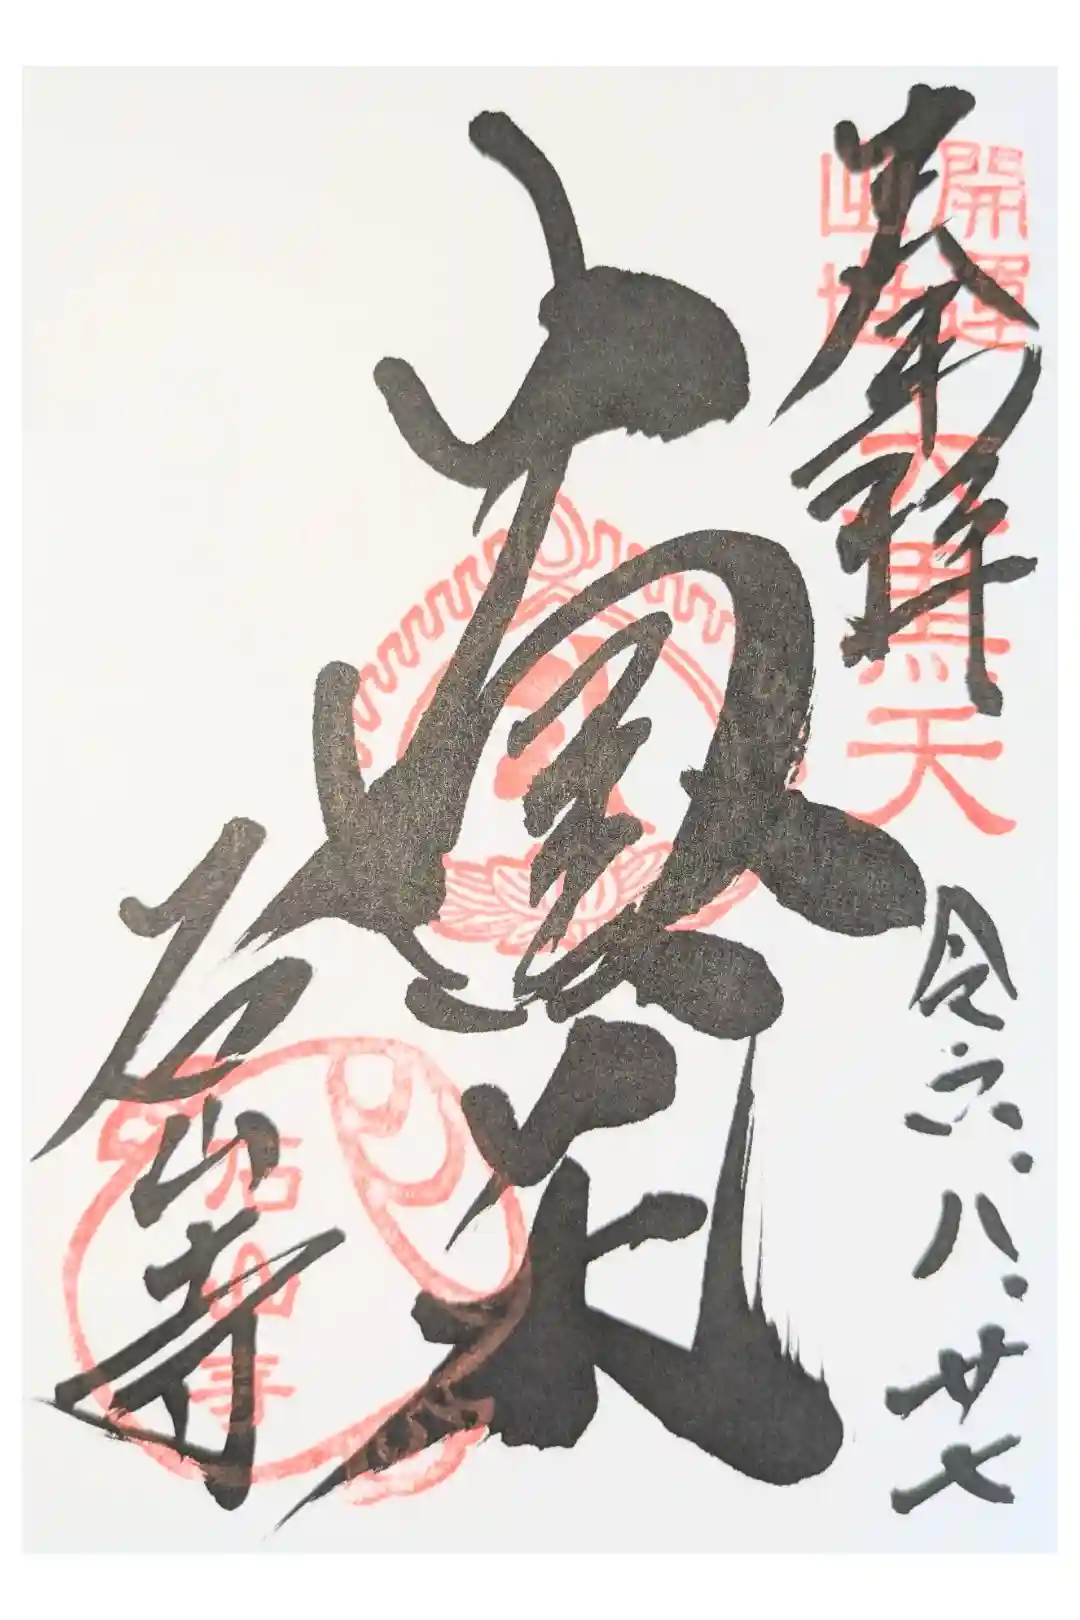 奉拝
開運
出世
大黒天
令六.八.廿七
大黒天
石山寺
石山寺